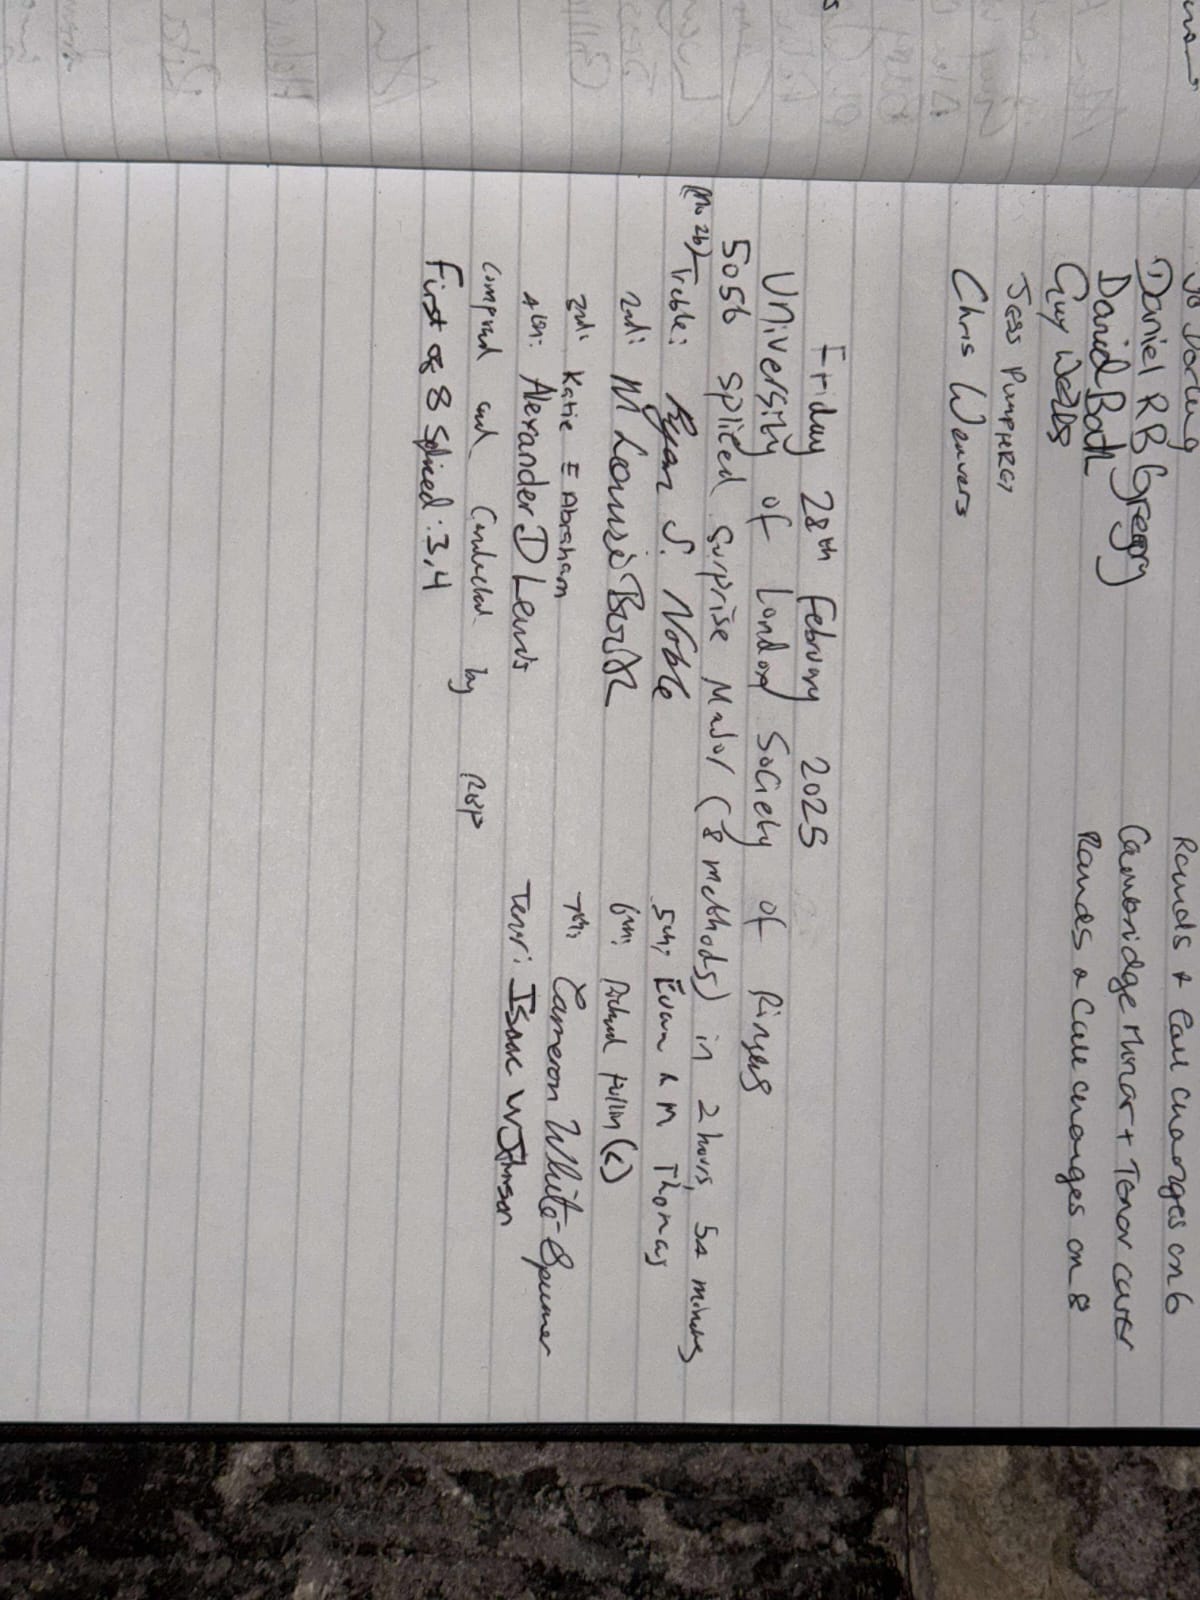 Jo Darling
Daniel RB Gregory
David Bath
Guy Wells
Jess Pumphrey
Chris Weavers
Rounds + Call changes on 6
Cambridge Minor + Tenor cover
Rounds & Call changes on 8
Friday 28th February 2025
University of London Society of Ringers
5056 Spliced Surprise Major (8 methods) in 2 hours, 54 minutes
(No 26)
Treble: Ryan S. Noble
2nd: M Louise Booth
3rd: Katie E Abraham
4th: Alexander D Lewis
5th: Evan R M Thomas
6th: Richard Pullin (C)
7th: Cameron White-Spunner
Tenor: Isaac W Johnson
Composed and Conducted by RBP
First of 8 Spliced: 3,4